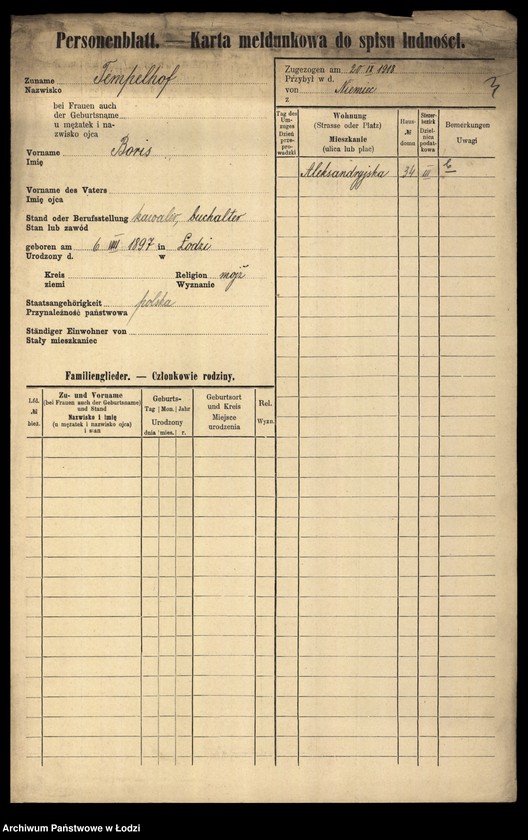 Personenblatt. — Karta meldunkowa do spisu ludności.
Zuname Tempelhof
Nazwisko
bei Frauen auch
der Geburtsname
u mężatek i na-
zwisko ojca
Vorname Boris
Imię
Vorname des Vaters
Imię ojca
Stand oder Berufsstellung kawaler, buchalter
Stan lub zawód
geboren am 6 1897 in Łodzi
Urodzony d. w
Kreis
ziemi
Religion mojż
Wyznanie
Staatsangehörigkeit polska
Przynależność państwowa
Ständiger Einwohner von
Stały mieszkaniec
Familienglieder. — Członkowie rodziny.
Lfd. № bież.
Zu- und Vorname
(bei Frauen auch der Geburtsname)
und Stand
Nazwisko i imię
(u mężatek i nazwisko ojca)
i stan
Geburts-
Tag Mon. Jahr
Urodzony
dnia mies. r.
Geburtsort
und Kreis
Miejsce
urodzenia
Rel.
Wyzn.
Zugezogen am 20 IX 1918
Przybył w d.
von Niemiec
z
3
Tag des
Um-
zuges
Dzień
prze-
prowadzki
Wohnung
(Strasse oder Platz)
Mieszkanie
(ulica lub plac)
Haus-
№
domu
Steuer-
bezirk
Dziel-
nica
podat-
kowa
Bemerkungen
Uwagi
Aleksandryjska 34 III
Archiwum Państwowe w Łodzi